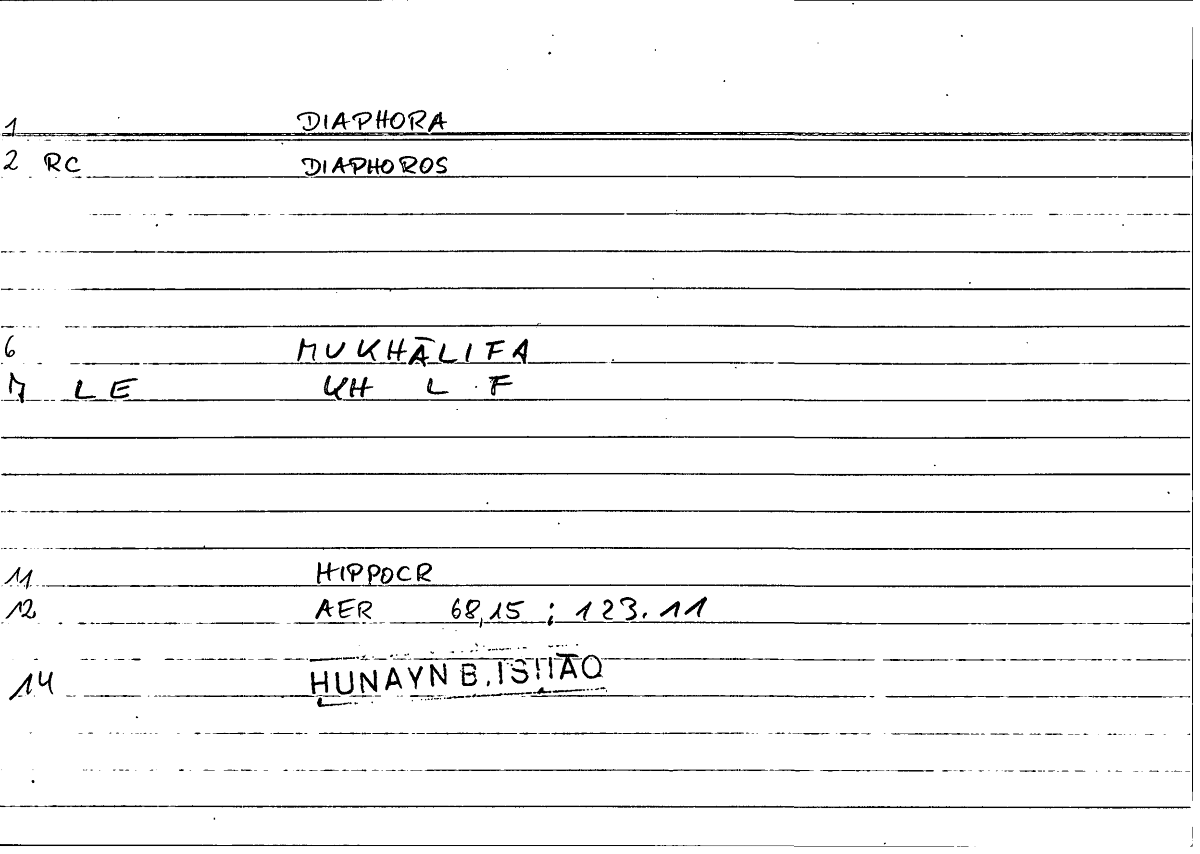 1 DIAPHORA
2 RC DIAPHOROS
6 MUKHĀLIFA
7 LE KH L F
11 HIPPOCR
12 AER 68,15 ; 123.11
14 ḤUNAYN B. ISḤĀQ